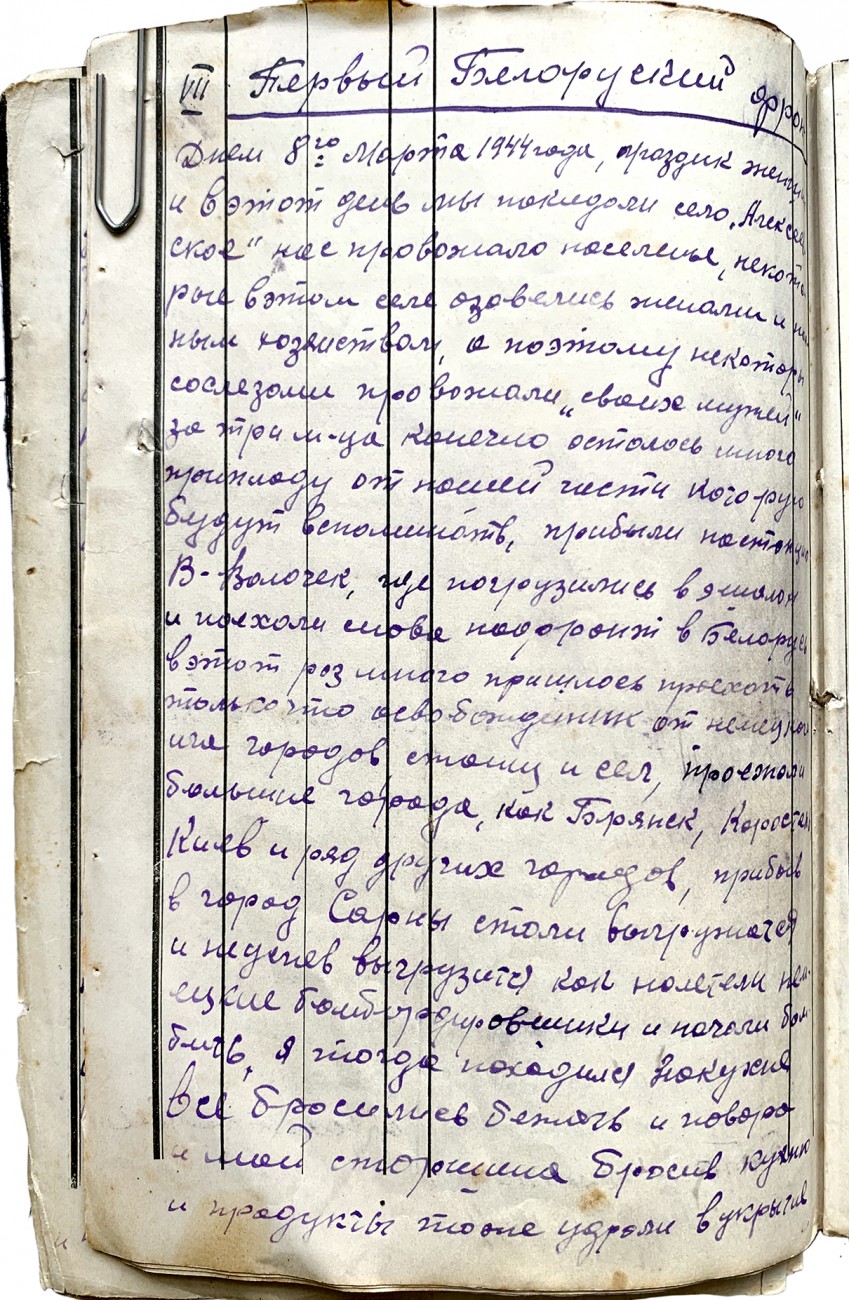 VII Первый Белоруский фрон
Днем 8го Марта 1944 года, праздик женщ
и в этот день мы покидали село „Алексеев
ское" нас провожало население, некото
рые в этом селе озавелись женами и
ным хозяиством, а поэтому некоторы
сослезами провожали „своих мужей"
за три м-ца конечно осталось много
приплоду от нашей части которую
будут вспоминать, прибыли на станцию
В-Волочек, где погрузились в эшалон
и поехали снова нафронт в Белорусь
вэтот раз много пришлось проехать
толькочто освобожденик от немецкого
ига городов станиц и сел, проежали
большие города, как Брянск, Коростен
Киев и ряд других городов, прибыв
в город Сарны стали выгружатся
и неуспев выгрузится как налетели нем-
ецкие бомбардировшики и начали бом-
бить, я тогда находился накухне
все бросились бежать и повара
и мой старшина бросив кухню
и продукты тоже удрали в укрытие